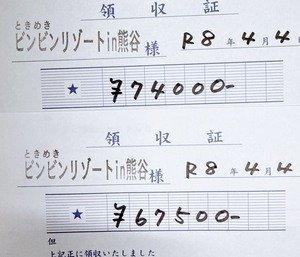 領収証
ときめき
ビンビンリゾートin熊谷 様 R8年4月4
★ ¥774000-
領収証
ときめき
ビンビンリゾートin熊谷 様 R8年4月4
★ ¥67500-
但
上記正に領収いたしました